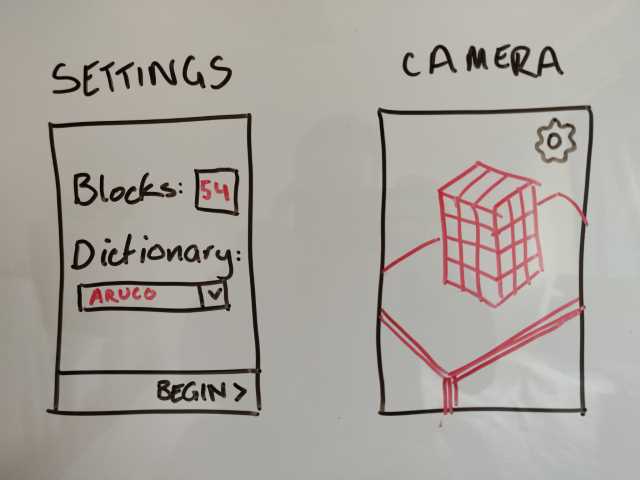 SETTINGS
Blocks: 54
Dictionary:
ARUCO
BEGIN >
CAMERA